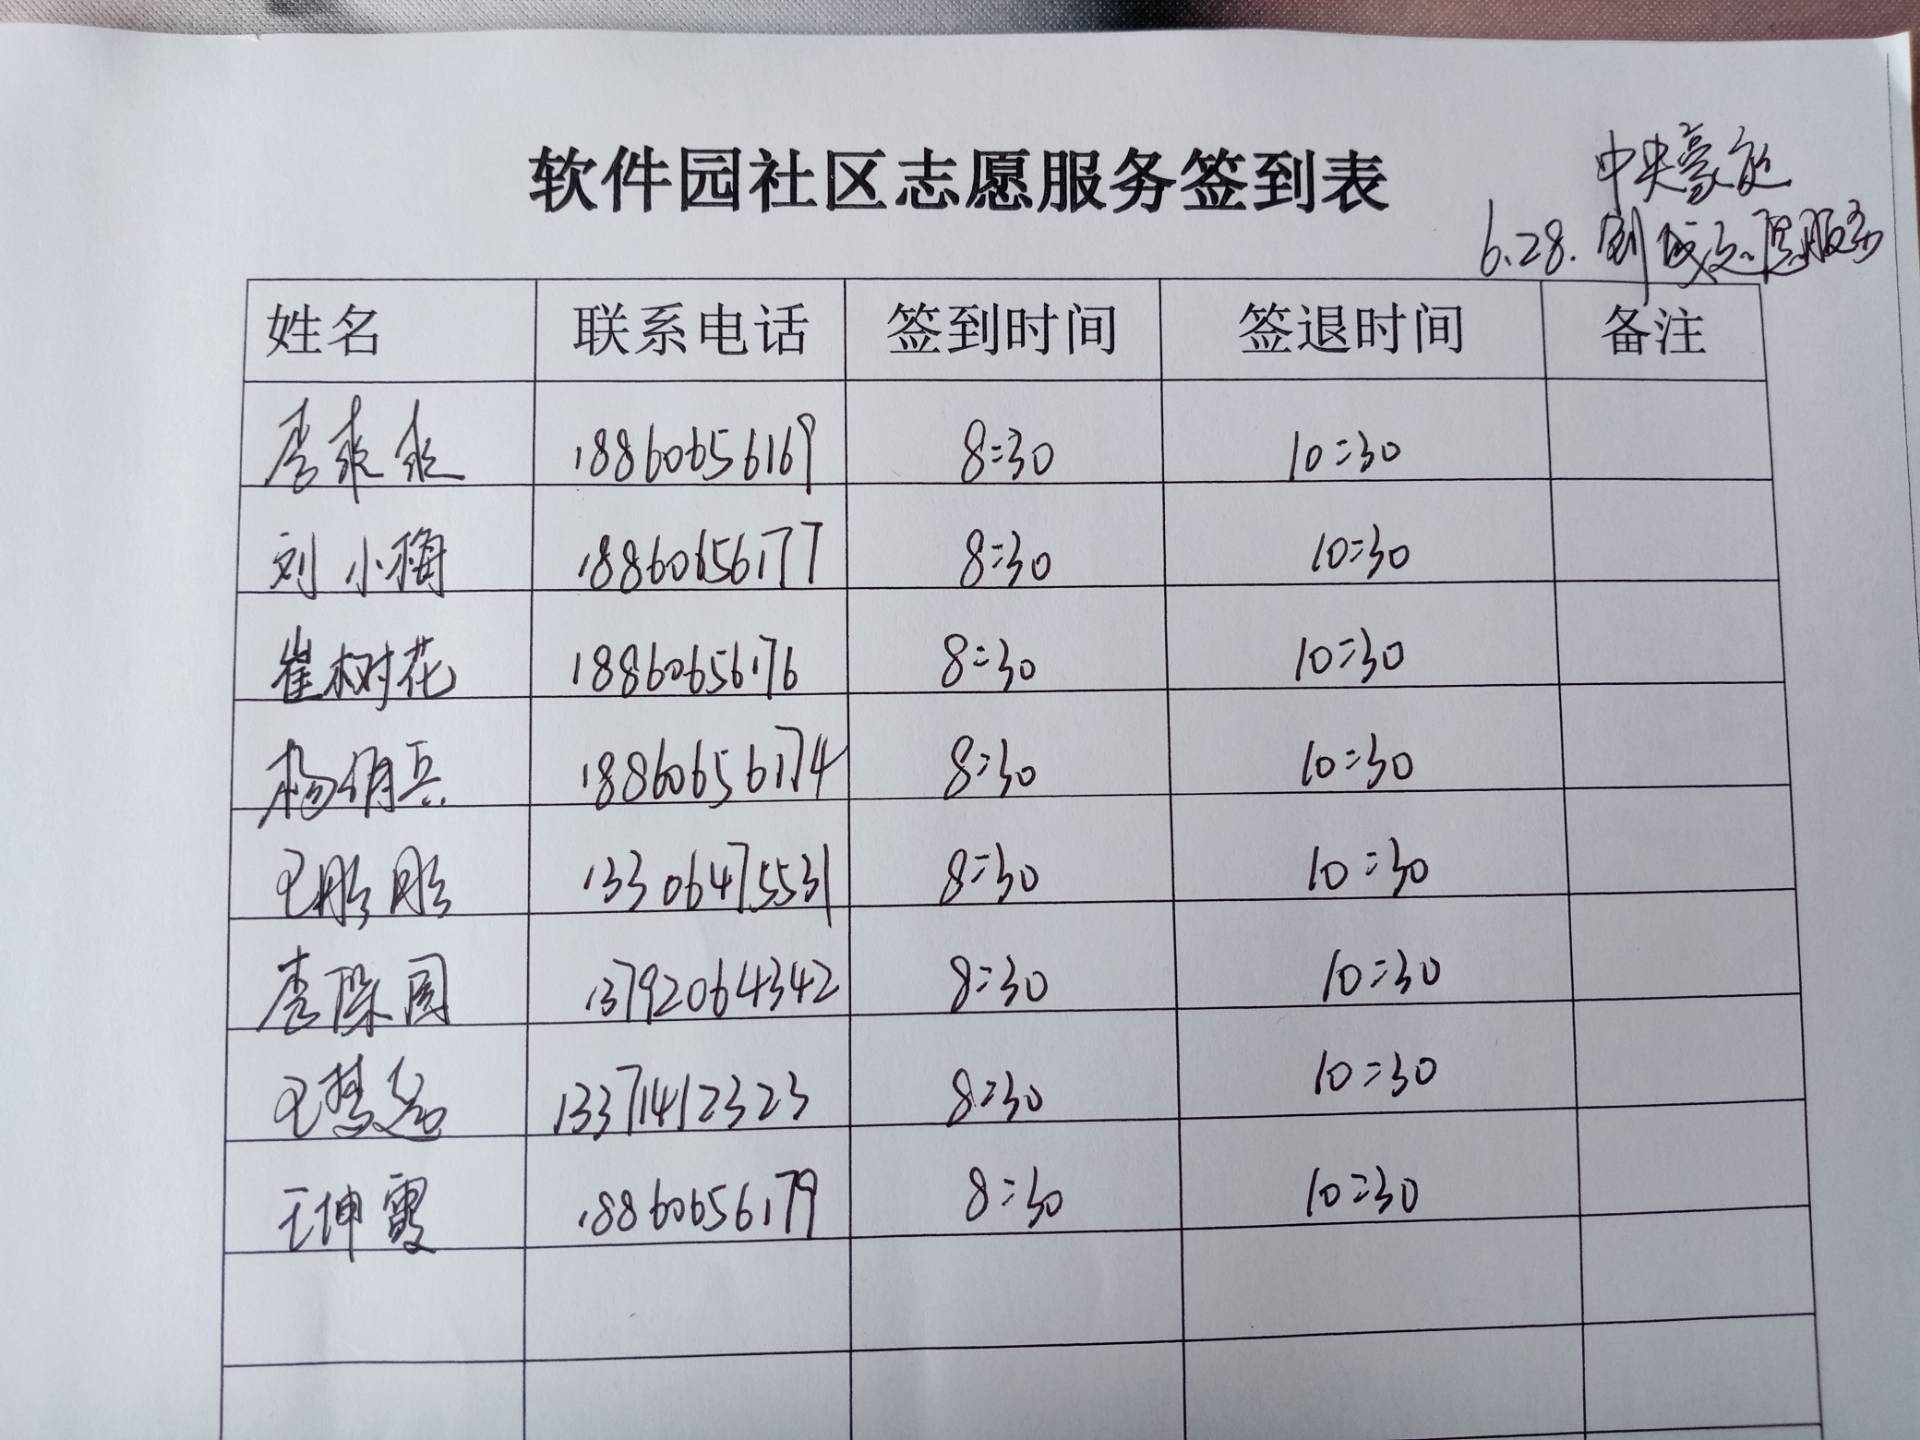 软件园社区志愿服务签到表
中央豪庭
6.28. 创城志愿服务
姓名 联系电话 签到时间 签退时间 备注
李爽爽 18860656169 8:30 10:30
刘小梅 18860656177 8:30 10:30
崔树花 18860656176 8:30 10:30
杨俏兵 18860656174 8:30 10:30
王彤彤 13306475531 8:30 10:30
李琛园 13792064342 8:30 10:30
王慧 13371412323 8:30 10:30
王坤霞 18860656179 8:30 10:30